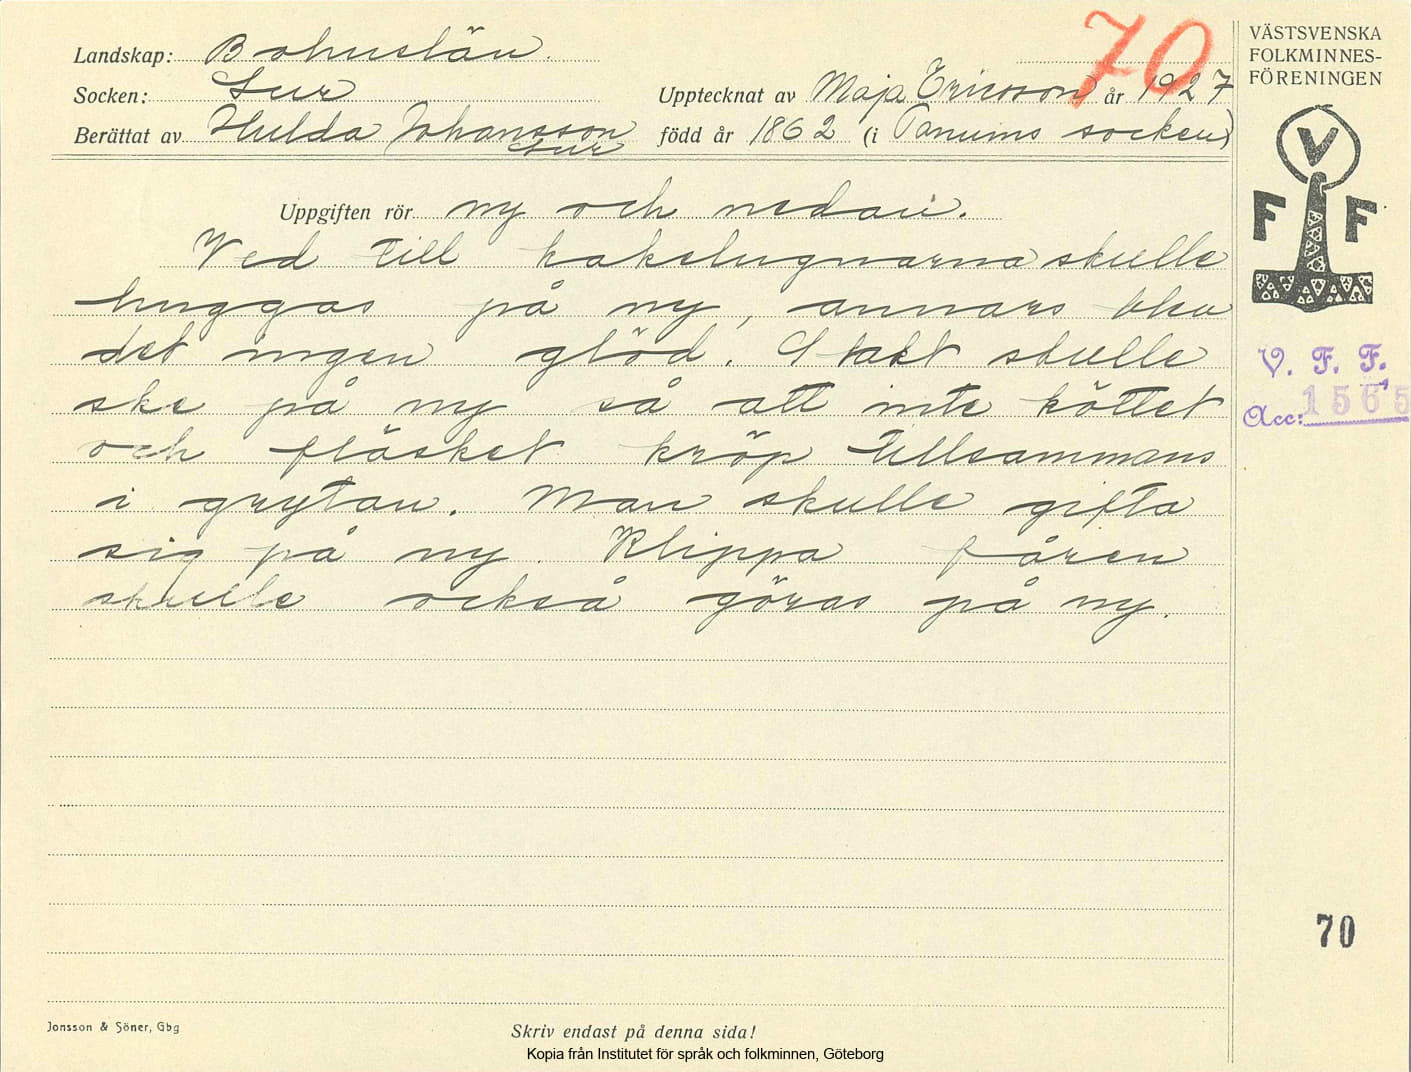 Landskap: Bohuslän.
70
Socken: Lur
Upptecknat av Maja Ericsson år 1927
Berättat av Hulda Johansson
Lur
född år 1862 (i Tanums socken)
VÄSTSVENSKA
FOLKMINNES-
FÖRENINGEN
V
F F
Uppgiften rör ny och nedan.
Ved till kakelugnarna skulle
huggas på ny, annars blev
det ingen glöd. Slakt skulle
ske på ny så att inte köttet
och fläsket kröp tillsammans
i grytan. Man skulle gifta
sig på ny. Klippa fåren
skulle också göras på ny.
V. F. F.
Acc: 1565
70
Jonsson & Söner, Gbg
Skriv endast på denna sida!
Kopia från Institutet för språk och folkminnen, Göteborg